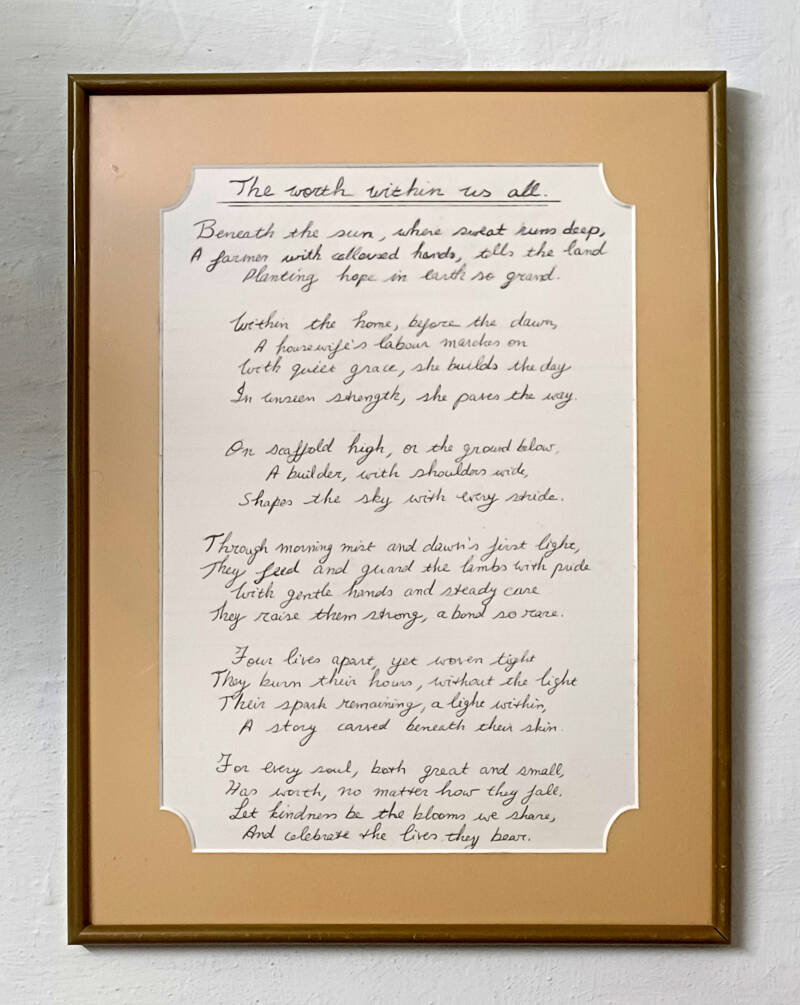 The worth within us all.
Beneath the sun, where sweat runs deep,
A farmer with calloused hands, tills the land
Planting hope in earth so grand.
Within the home, before the dawn,
A housewife's labour marches on
With quiet grace, she builds the day
In unseen strength, she paves the way.
On scaffold high, or the ground below,
A builder, with shoulders wide,
Shapes the sky with every stride.
Through morning mist and dawn's first light,
They feed and guard the lambs with pride
With gentle hands and steady care
They raise them strong, a bond so rare.
Four lives apart, yet woven tight
They burn their hours, without the light
Their spark remaining, a light within,
A story carved beneath their skin.
For every soul, both great and small,
Has worth, no matter how they fall.
Let kindness be the blooms we share,
And celebrate the lives they bear.